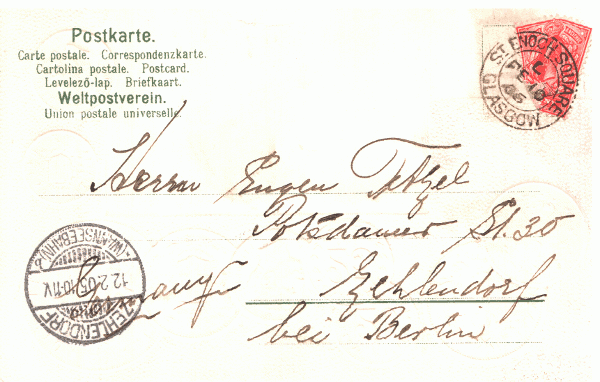 Postkarte.
Carte postale. Correspondenzkarte.
Cartolina postale. Postcard.
Levelező-lap. Briefkaart.
Weltpostverein.
Union postale universelle.
ST. ENOCH SQUARE
L
FE 10
05
GLASGOW
Herrn Eugen Tetzel
Potsdamer St. 30
Zehlendorf
bei Berlin
Germany
(WANNSEEBAHN)
12.2.05. 10-11V.
ZEHLENDORF